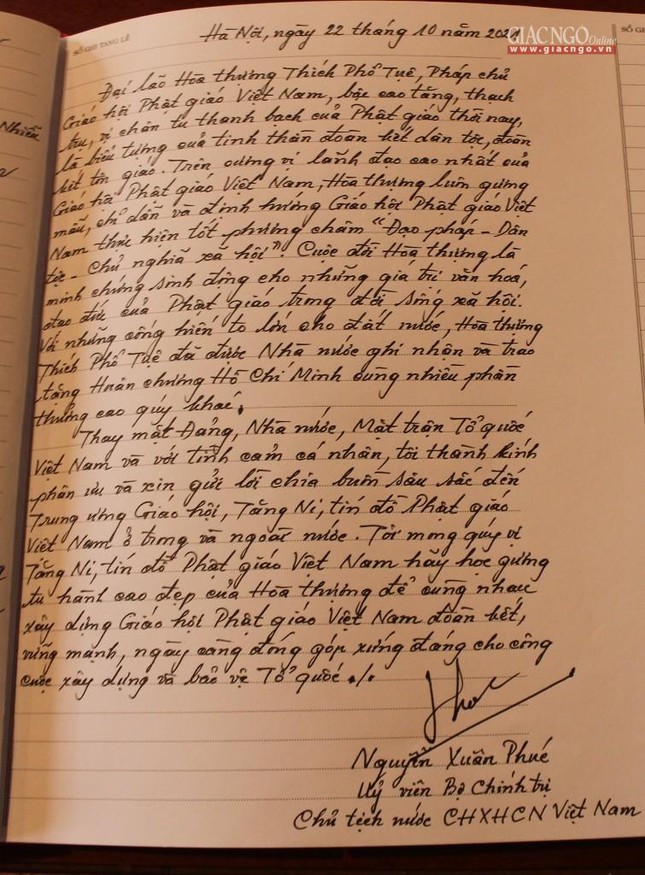 SỔ GHI TANG LỄ
GIACNGO Online
www.giacngo.vn
SỔ GHI
Nhiễu
Hà Nội, ngày 22 tháng 10 năm 2021
Đại lão Hòa thượng Thích Phổ Tuệ, Pháp chủ
Giáo hội Phật giáo Việt Nam, bậc cao tăng, thạch
trụ, vị chân tu thanh bạch của Phật giáo thời nay,
là biểu tượng của tinh thần đoàn kết dân tộc, đoàn
kết tôn giáo. Trên cương vị lãnh đạo cao nhất của
Giáo hội Phật giáo Việt Nam, Hòa thượng luôn gương
mẫu, chỉ dẫn và định hướng Giáo hội Phật giáo Việt
Nam thực hiện tốt phương châm "Đạo pháp - Dân
tộc - Chủ nghĩa xã hội". Cuộc đời Hòa thượng là
minh chứng sinh động cho những giá trị văn hoá,
đạo đức của Phật giáo trong đời sống xã hội.
Với những cống hiến to lớn cho đất nước, Hòa thượng
Thích Phổ Tuệ đã được Nhà nước ghi nhận và trao
tặng Huân chương Hồ Chí Minh cùng nhiều phần
thưởng cao quý khác.
Thay mặt Đảng, Nhà nước, Mặt trận Tổ quốc
Việt Nam và với tình cảm cá nhân, tôi thành kính
phân ưu và xin gửi lời chia buồn sâu sắc đến
Trung ương Giáo hội, Tăng Ni, tín đồ Phật giáo
Việt Nam ở trong và ngoài nước. Tôi mong quý vị
Tăng Ni, tín đồ Phật giáo Việt Nam hãy học gương
tu hành cao đẹp của Hòa thượng để cùng nhau
xây dựng Giáo hội Phật giáo Việt Nam đoàn kết,
vững mạnh, ngày càng đóng góp xứng đáng cho công
cuộc xây dựng và bảo vệ Tổ quốc ./.
Nguyễn Xuân Phúc
Uỷ viên Bộ Chính trị
Chủ tịch nước CHXHCN Việt Nam